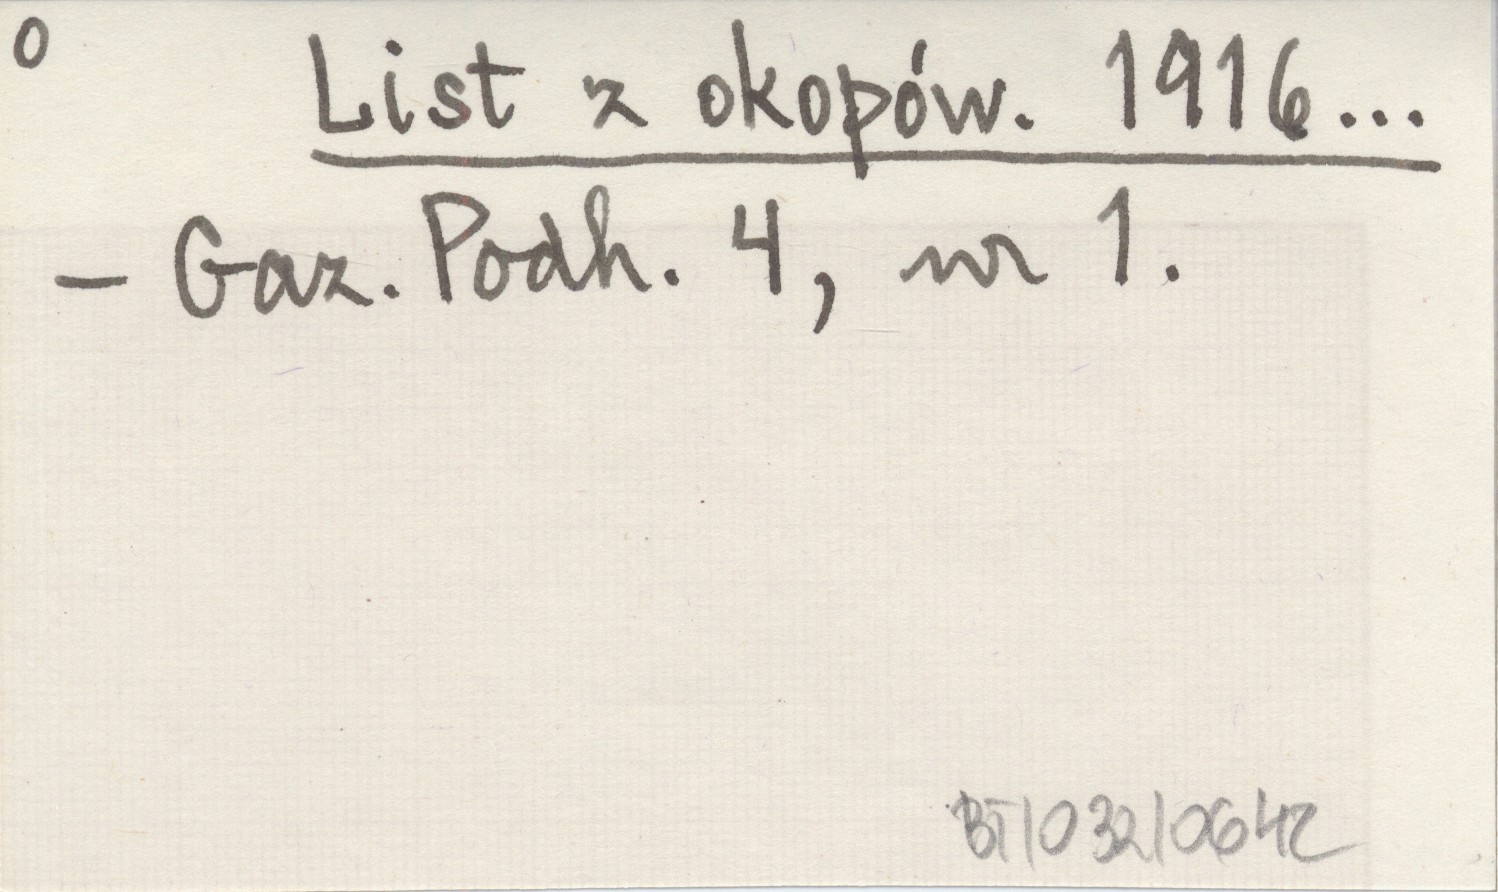 0
List z okopów. 1916...
– Gaz. Podh. 4, nr 1.
BT/032/0642